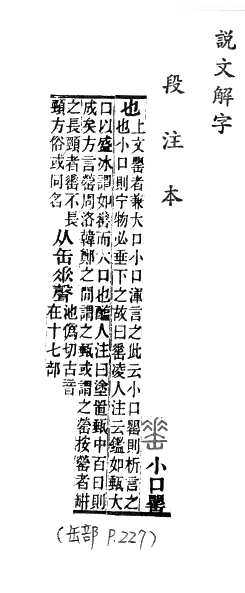 説文解字
段注本
小口罌
也上文罌者兼大口小口渾言之此云小口罌則析言之
也小口則宁物必垂下之故曰𦉈凌人注云鑑如甀大
口以盛冰謂如𦉈而大口也醢人注曰塗置甀中百日則
成矣方言罃周洛韓鄭之閒謂之甀或謂之罃按罃者
之長頸者𦉈不長
頸方俗或同名
从缶𠂹聲
池僞切古音
在十七部
(缶部 P.227)